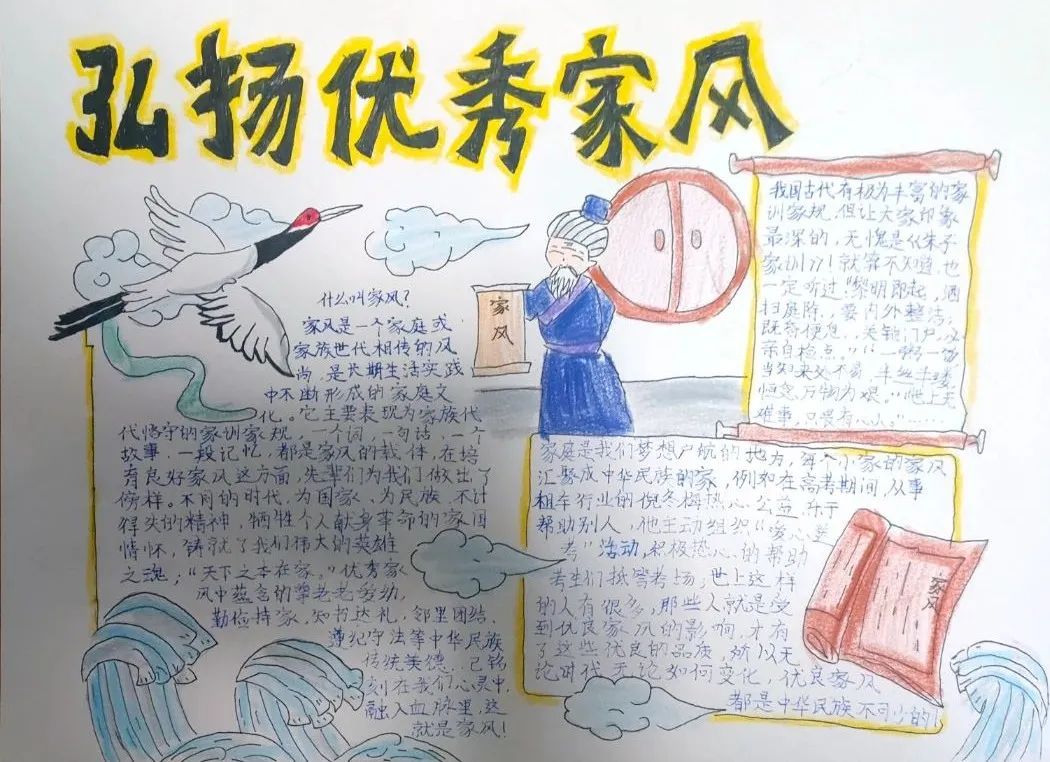 弘扬优秀家风
什么叫家风?
家风是一个家庭或
家族世代相传的风
尚,是长期生活实践
中不断形成的家庭文
化。它主要表现为家族代
代恪守的家训家规,一个词,一句话,一个
故事,一段记忆,都是家风的载体,在培
育良好家风这方面,先辈们为我们做出了
榜样。不同的时代,为国家、为民族,不计
得失的精神,牺牲个人献身革命的家国
情怀,铸就了我们伟大的英雄
之魂,“天下之本在家。”优秀家
风中蕴含的尊老爱幼,
勤俭持家,知书达礼,邻里团结,
遵纪守法等中华民族
传统美德,已铭
刻在我们心灵中,
融入血脉里,这
就是家风!
家风
我国古代有极为丰富的家
训家规,但让大家印象
最深的,无愧是《朱子
家训》了!就算不知道,也
一定听过“黎明即起,洒
扫庭除,要内外整洁,
既昏便息,关锁门户,必
亲自检点。”“一粥一饭
当知来处不易,半丝半缕
恒念万物为艰。”“世上无
难事,只畏有心人。”……
家庭是我们梦想启航的地方,每个小家的家风
汇聚成中华民族的家,例如在高考期间,从事
租车行业的倪冬梅热心公益,乐于
帮助别人,他主动组织“爱心送
考”活动,积极热心的帮助
考生们抵答考场;世上这样
的人有很多,那些人就是受
到优良家风的影响,才有
了这些优良的品质,所以无
论时代无论如何变化,优良家风
都是中华民族不可少的!
家风